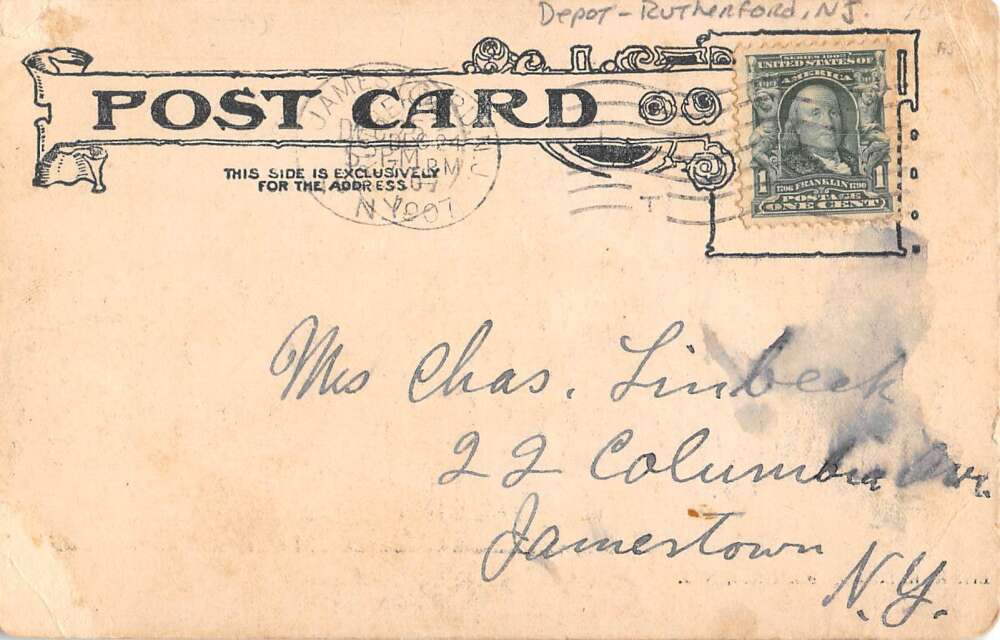 Depot - Rutherford, NJ.
SERIES 1902
UNITED STATES OF
AMERICA
POST CARD
THIS SIDE IS EXCLUSIVELY
FOR THE ADDRESS
JAMESTOWN
DEC 24
N.Y.
1907
1 1706 FRANKLIN 1790 1
POSTAGE
ONE CENT
Mrs Chas. Linbeck
22 Columbia Ave.
Jamestown
N.Y.